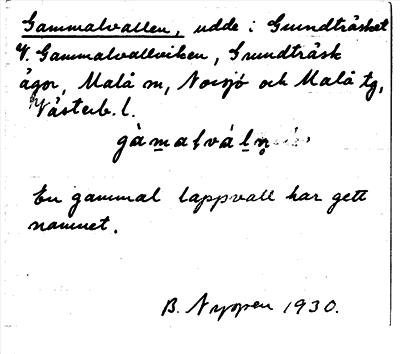 Gammalvallen, udde i Grundträsket
V. Gammalvallviken, Grundträsk
ägor, Malå m, Norsjö och Malå tg,
Västerb. l.
gàmalválṇ
En gammal lappvall har gett
namnet.
B. Nyppen 1930.